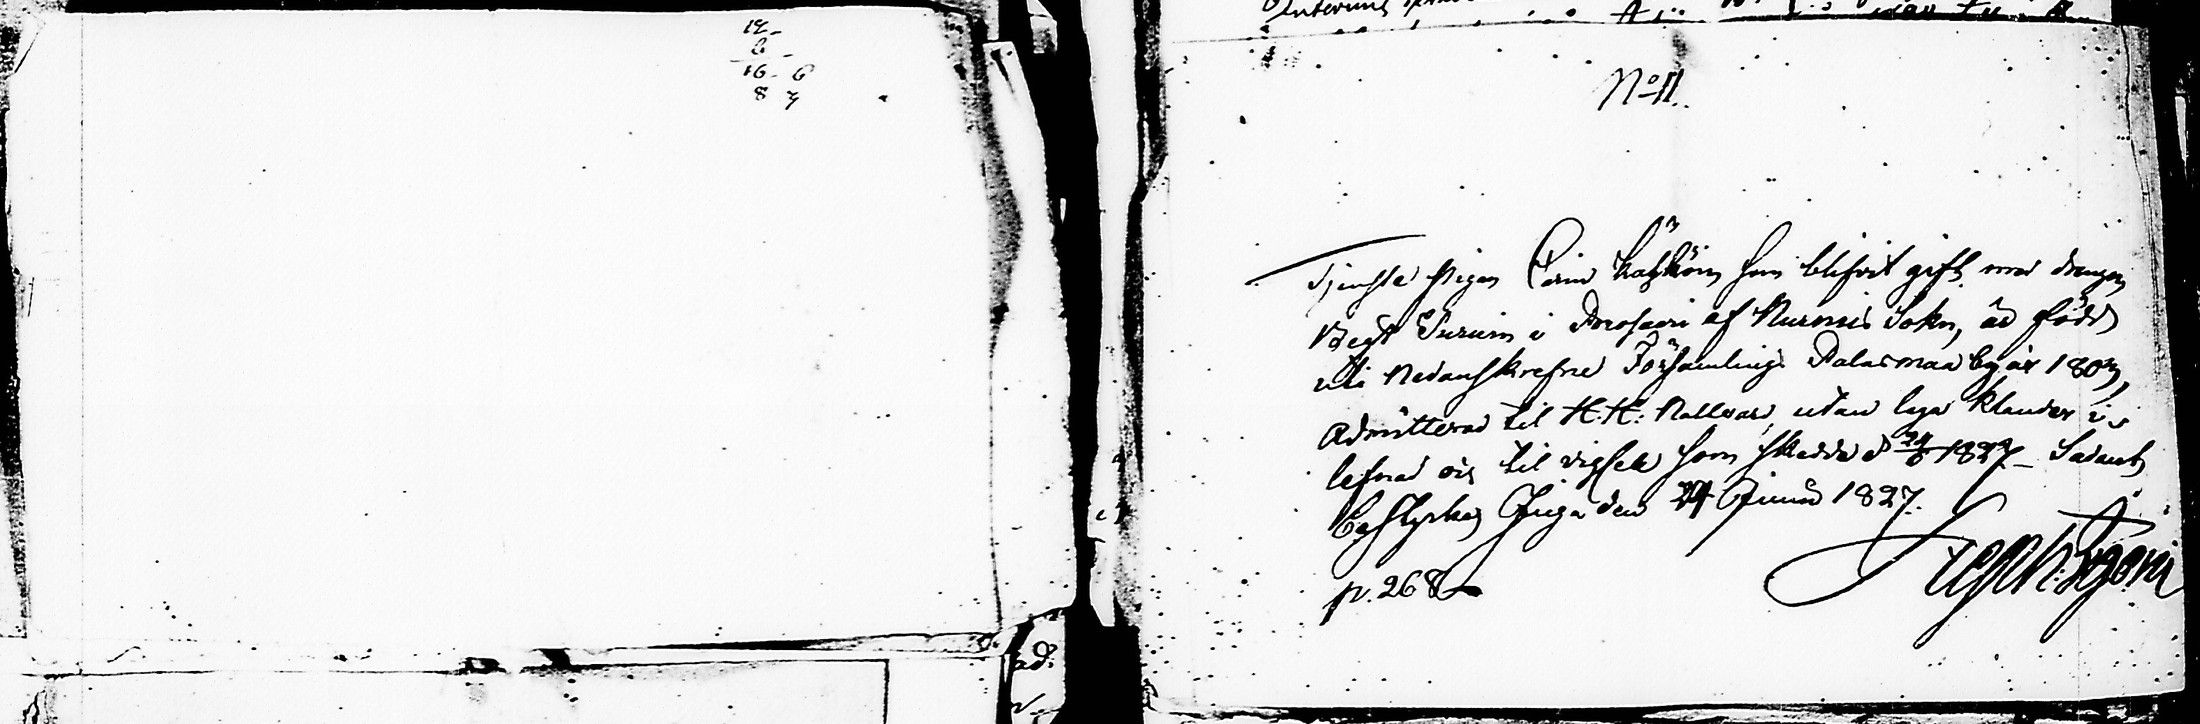 12 -
6 -
16 - 6
8 7
No 11.
Tjenste Pigan Carin som blifvit gift med drengen
Bengt Turuin i af Nurmis Sokn, är född
uti Nedanskrefne Församling Palasmaa by år 1803,
Admitterad til H. H. Nattvard, utan laga klander i sin
lefnad ock til vigsel som skedde d 24/6 1827 - Sådant
bestyrkes Juga den 24 Junii 1827.
p. 268
ad.